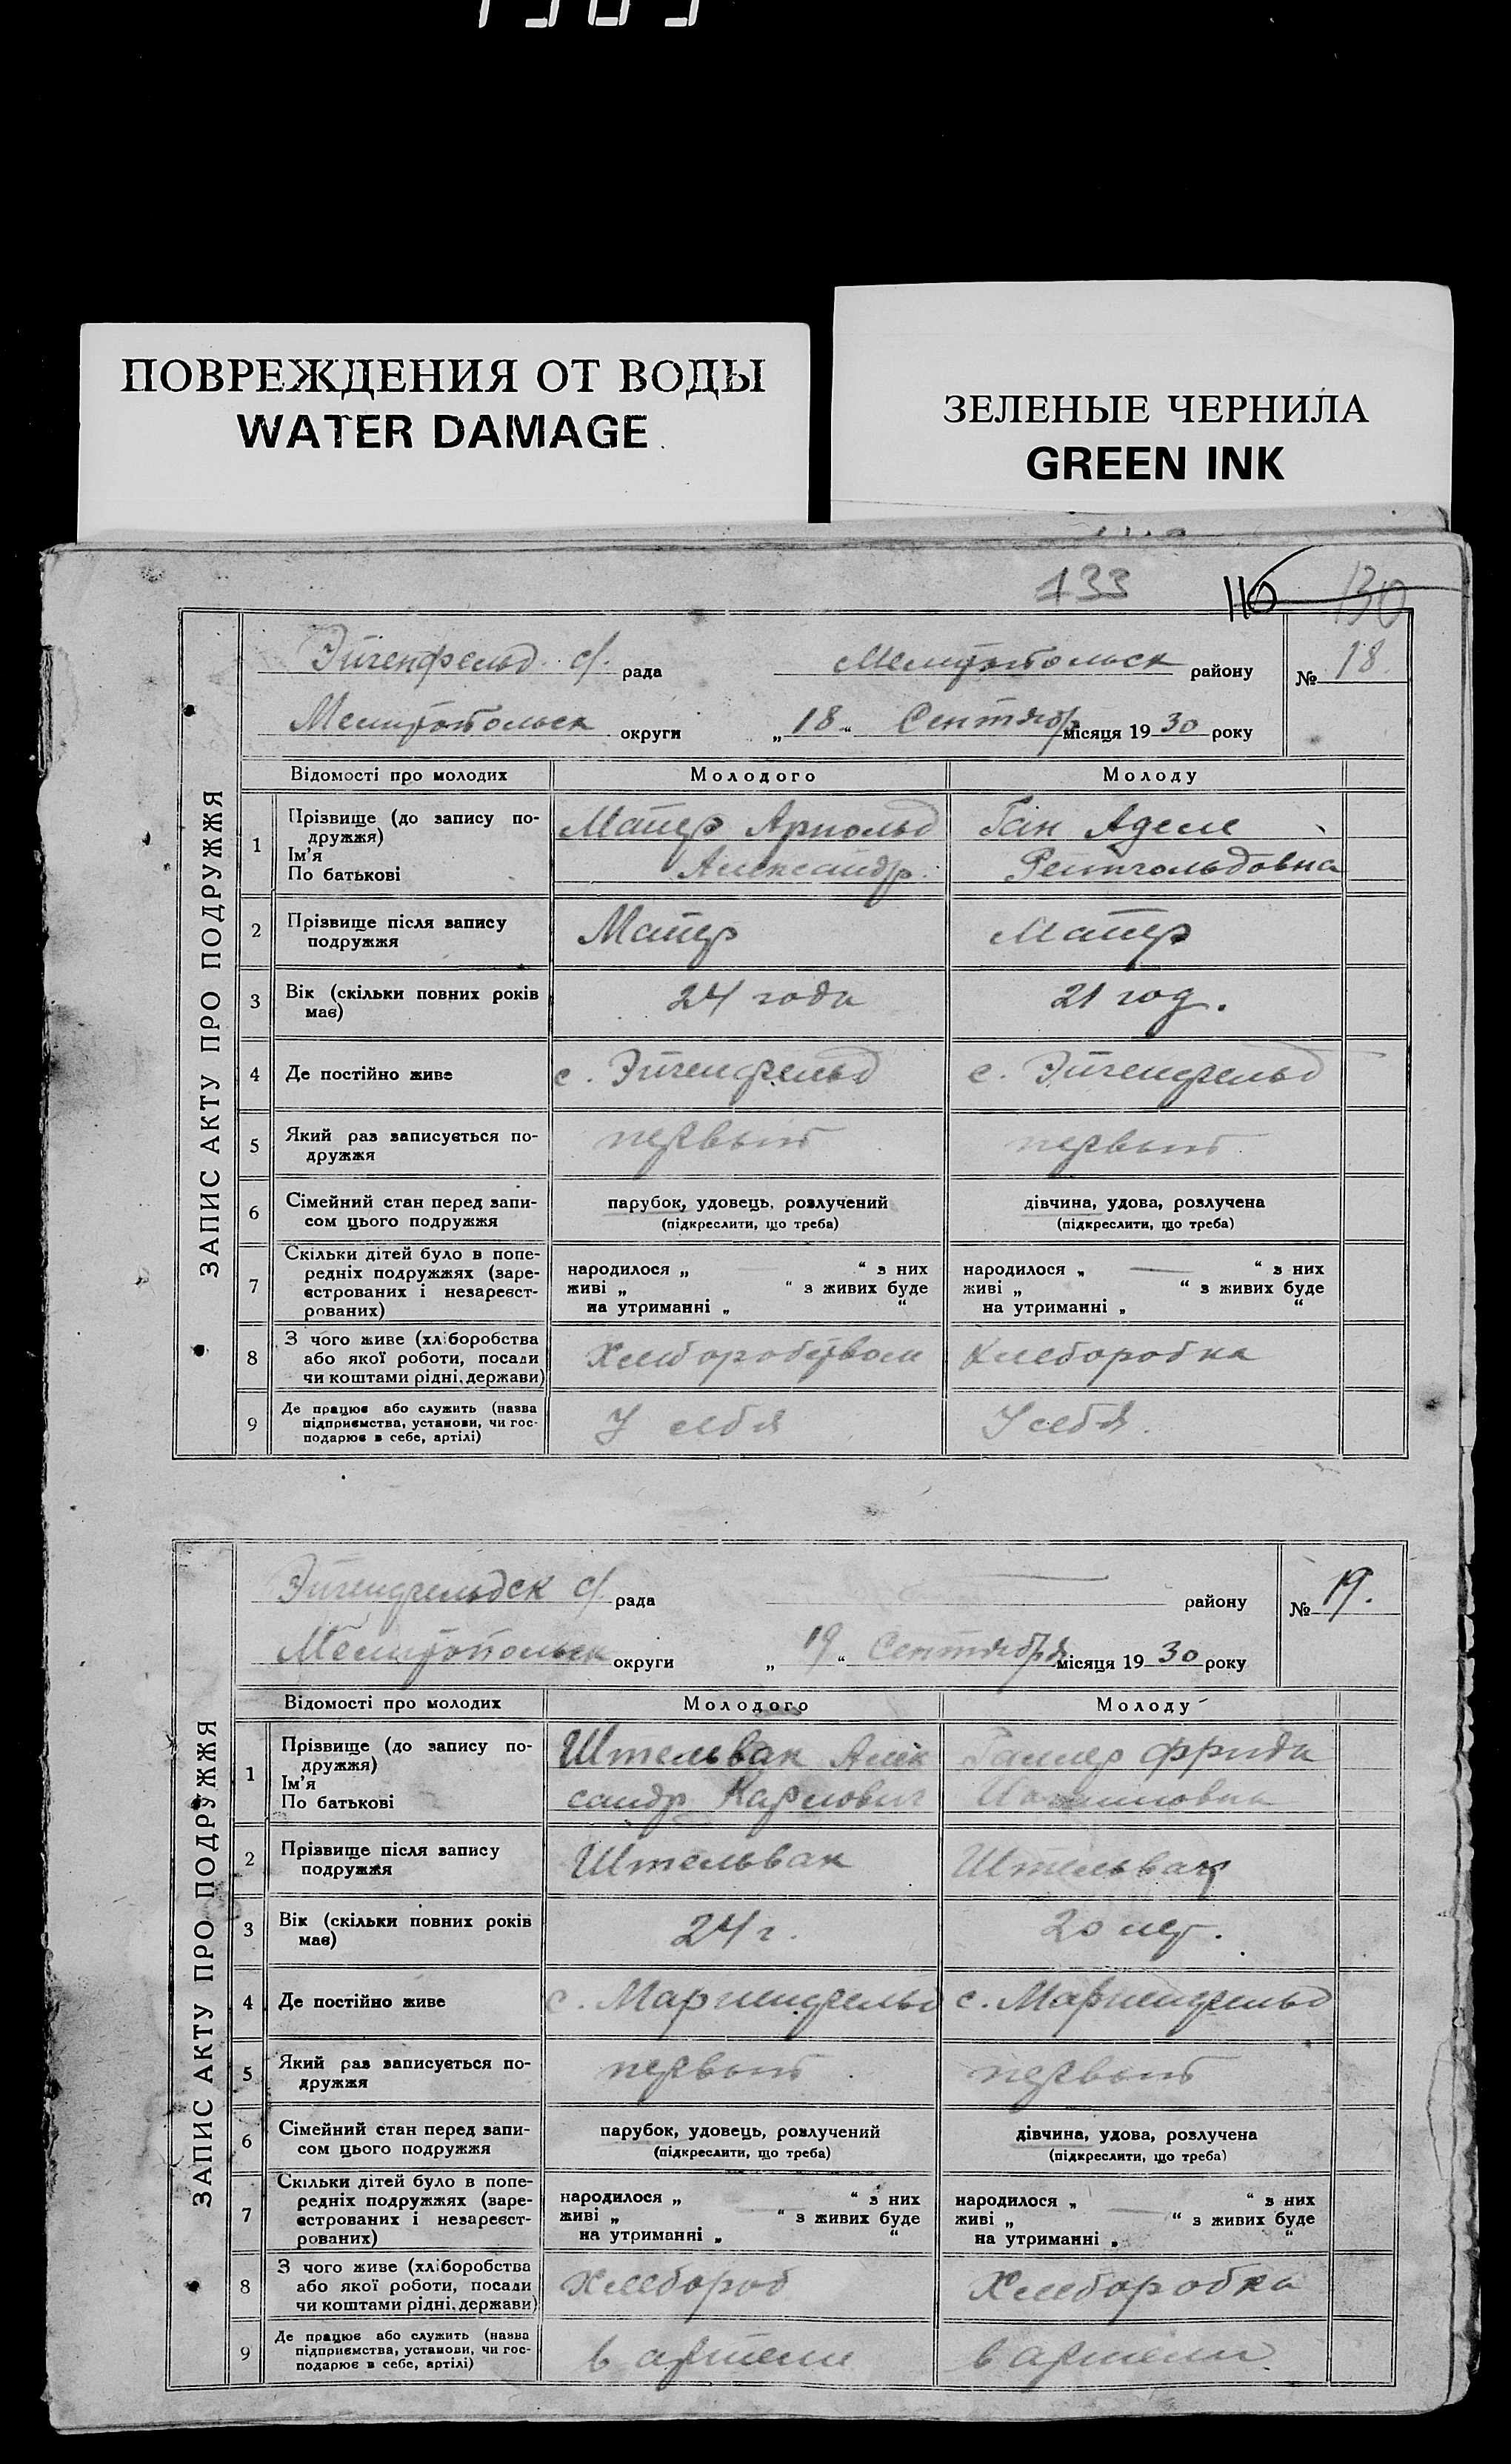 ПОВРЕЖДЕНИЯ ОТ ВОДЫ
WATER DAMAGE
ЗЕЛЕНЫЕ ЧЕРНИЛА
GREEN INK
133 116 130
ЗАПИС АКТУ ПРО ПОДРУЖЖЯ
Эйгенфельд с/. рада Мелитопольск району № 18
Мелитопольск округи „ 18 “ Сентябр місяця 19 30 року
Відомості про молодих Молодого Молоду
1 Прізвище (до запису по-
дружжя)
Ім'я
По батькові
Майер Арнольд
Александр.
Ган Аделе
Рейнгольдовна
2 Прізвище після запису
подружжя
Майер Майер
3 Вік (скільки повних років
має)
24 года 21 год.
4 Де постійно живе с. Эйгенфельд с. Эйгенфельд
5 Який раз записується по-
дружжя
первый первый
6 Сімейний стан перед запи-
сом цього подружжя
парубок, удовець, розлучений
(підкреслити, що треба)
дівчина, удова, розлучена
(підкреслити, що треба)
7 Скільки дітей було в попе-
редніх подружжях (заре-
єстрованих і незареєст-
рованих)
народилося „ — “ з них
живі „ “ з живих буде
на утриманні „ “
народилося „ — “ з них
живі „ “ з живих буде
на утриманні „ “
8 З чого живе (хліборобства
або якої роботи, посади
чи коштами рідні, держави)
Хлеборобством Хлеборобка
9 Де працює або служить (назва
підприємства, установи, чи гос-
подарює в себе, артілі)
У себя У себя.
ЗАПИС АКТУ ПРО ПОДРУЖЖЯ
Эйгенфельдск с/. рада — району № 19.
Мелитопольск округи „ 19 “ Сентября місяця 19 30 року
Відомості про молодих Молодого Молоду
1 Прізвище (до запису по-
дружжя)
Ім'я
По батькові
Штельвак Алек
сандр Карлович
Фрида
2 Прізвище після запису
подружжя
Штельвак Штельвак
3 Вік (скільки повних років
має)
24 г. 20 лет.
4 Де постійно живе с. Мариенфельд с. Мариенфельд
5 Який раз записується по-
дружжя
первый первый
6 Сімейний стан перед запи-
сом цього подружжя
парубок, удовець, розлучений
(підкреслити, що треба)
дівчина, удова, розлучена
(підкреслити, що треба)
7 Скільки дітей було в попе-
редніх подружжях (заре-
єстрованих і незареєст-
рованих)
народилося „ — “ з них
живі „ “ з живих буде
на утриманні „ “
народилося „ — “ з них
живі „ “ з живих буде
на утриманні „ “
8 З чого живе (хліборобства
або якої роботи, посади
чи коштами рідні, держави)
Хлебороб Хлеборобка
9 Де працює або служить (назва
підприємства, установи, чи гос-
подарює в себе, артілі)
в артели в артели